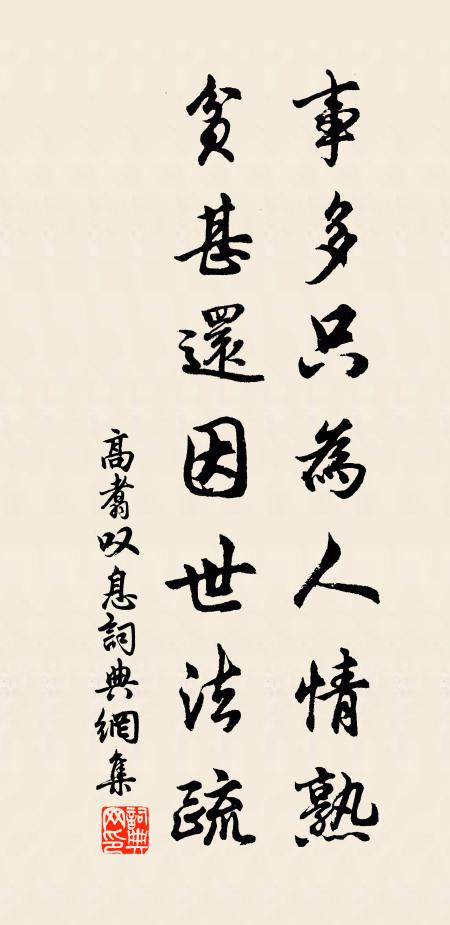 事多只為人情熟
貧甚還因世法疏
高翥叹息詞典網集
詞典網印